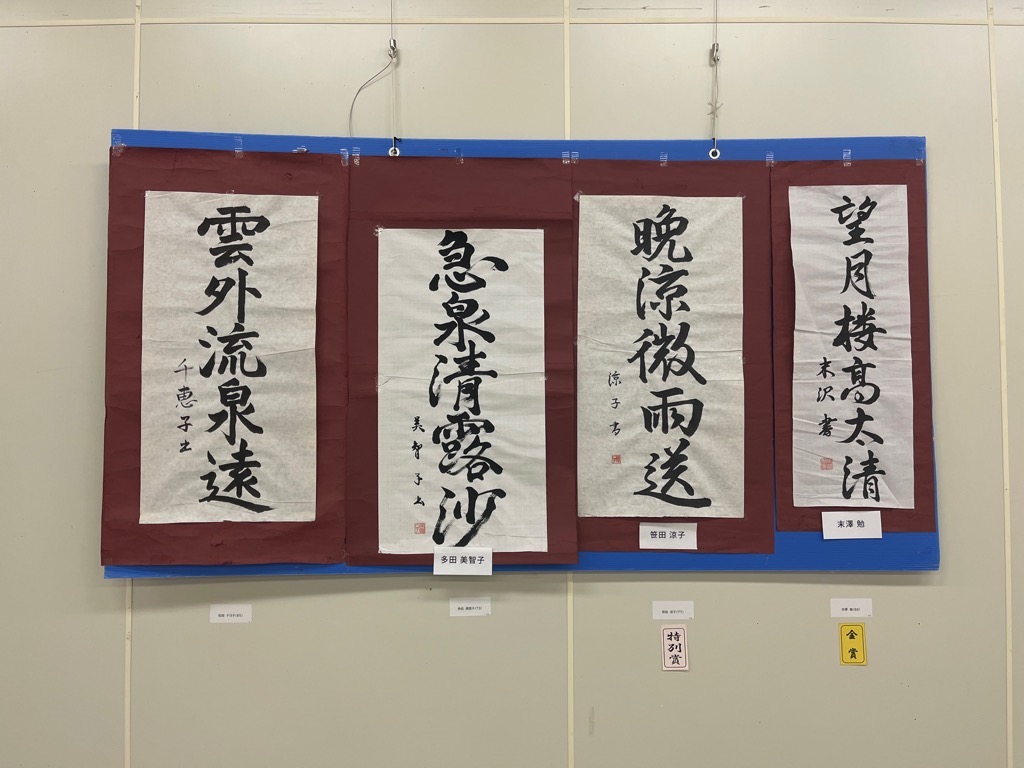 雲外流泉遠
千恵子书
急泉清露沙
美智子
多田 美智子
晩涼微雨送
涼子书
笹田 涼子
望月楼高太清
末沢書
末澤 勉
特別賞
金賞